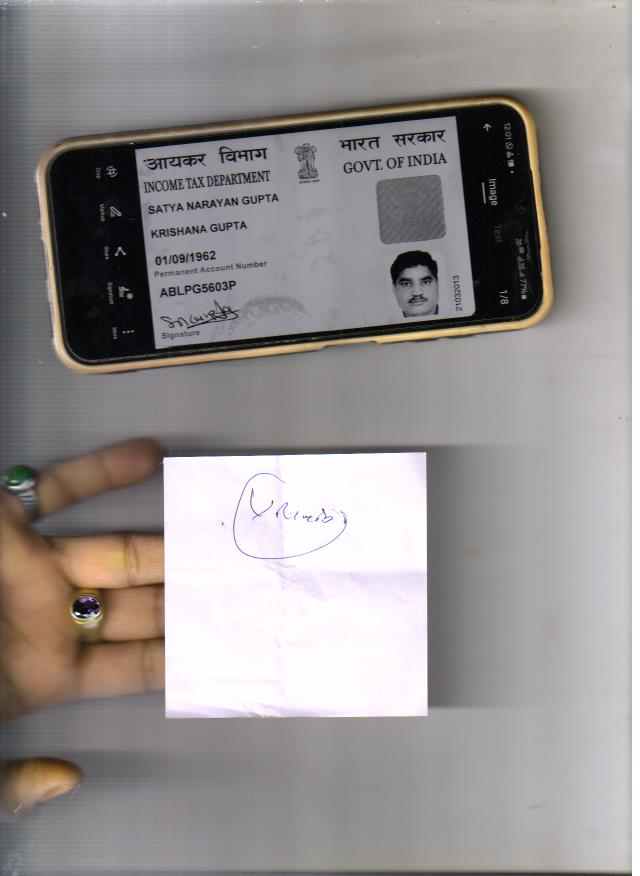 आयकर विभाग
INCOME TAX DEPARTMENT
भारत सरकार
GOVT. OF INDIA
SATYA NARAYAN GUPTA
KRISHANA GUPTA
01/09/1962
Permanent Account Number
ABLPG5603P
Signature
21032013
12:01
Image
Text
77%
1/8
Crop
Markup
Share
Signature
More